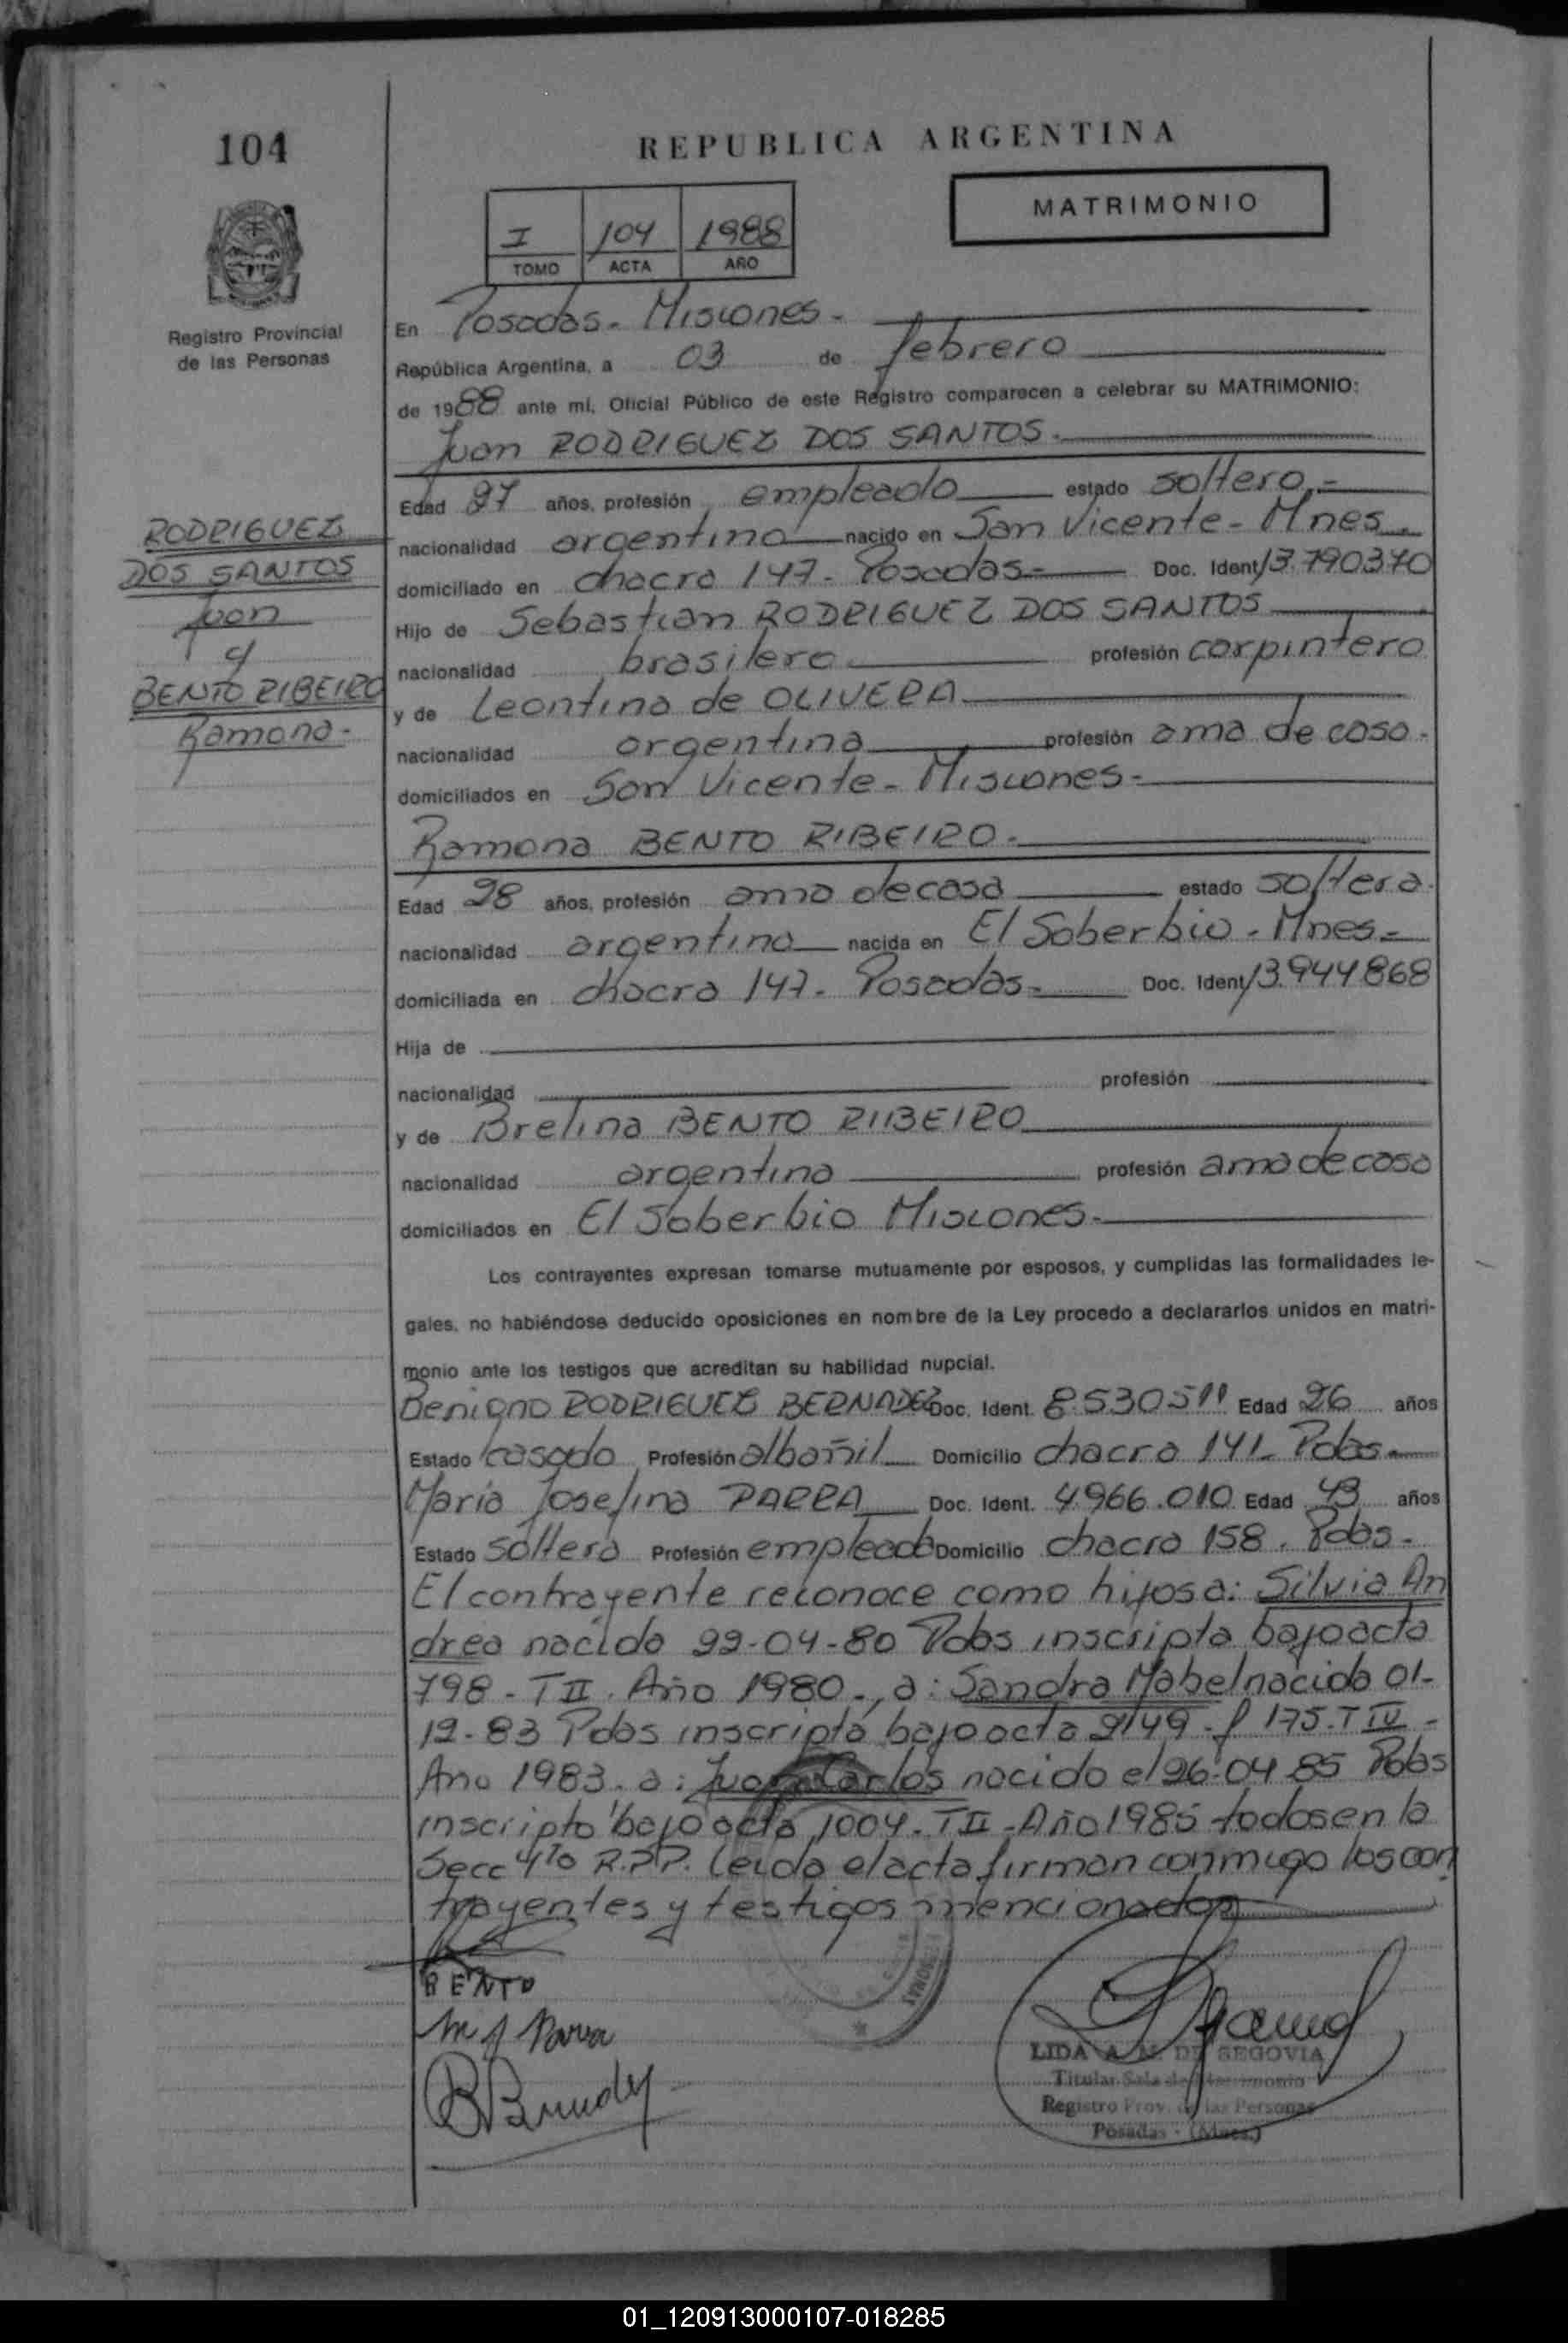 104
REPUBLICA ARGENTINA
MATRIMONIO
I 104 1988
TOMO ACTA AÑO
Registro Provincial
de las Personas
En Posadas - Misiones -
República Argentina, a 03 de febrero
de 1988 ante mí, Oficial Público de este Registro comparecen a celebrar su MATRIMONIO:
Juan RODRIGUEZ DOS SANTOS.
Edad 27 años, profesión empleado estado soltero.-
nacionalidad argentina nacido en San Vicente - Mnes.
domiciliado en chacra 147 - Posadas - Doc. Ident. 13.790370
Hijo de Sebastian RODRIGUEZ DOS SANTOS
nacionalidad brasilera profesión carpintero
y de Leontina de OLIVERA
nacionalidad argentina profesión ama de casa.
domiciliados en San Vicente - Misiones -
RODRIGUEZ
DOS SANTOS
Juan
y
BENTO RIBEIRO
Ramona -
Ramona BENTO RIBEIRO.
Edad 28 años, profesión ama de casa estado soltera.
nacionalidad argentina nacida en El Soberbio - Mnes -
domiciliada en chacra 147 - Posadas - Doc. Ident. 13.944868
Hija de
nacionalidad profesión
y de Brelina BENTO RIBEIRO
nacionalidad argentina profesión ama de casa
domiciliados en El Soberbio Misiones -
Los contrayentes expresan tomarse mutuamente por esposos, y cumplidas las formalidades le-
gales, no habiéndose deducido oposiciones en nombre de la Ley procedo a declararlos unidos en matri-
monio ante los testigos que acreditan su habilidad nupcial.
Benigno RODRIGUEZ BERNADEZ Doc. Ident. 8.530511 Edad 26 años
Estado casado Profesión albañil Domicilio chacra 141 - Pdas -
María Josefina PARRA Doc. Ident. 4.966.010 Edad 43 años
Estado soltera Profesión empleada Domicilio chacra 158. Pdas -
El contrayente reconoce como hijos a: Silvia An
drea nacida 22-04-80 Pdas inscripta bajo acta
798 - T II. Año 1980 -, a: Sandra Mabel nacida 01-
12-83 Pdas inscripta bajo acta 2149 - f 175. T IV -
Año 1983. a: Juan Carlos nacido el 26-04 85 Pdas
inscripto bajo acta 1004 - T II - Año 1985 todos en la
Secc 4ta R.P.P. Leida el acta firman conmigo los con
trayentes y testigos mencionados
BENTO
M J Parra
LIDA A. DE SEGOVIA
Titular Sala de Matrimonio
Registro Prov. de las Personas
Posadas - (Mnes.)
01_120913000107-018285